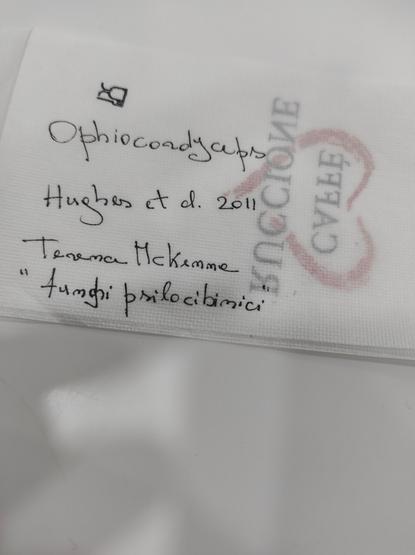 Ophiocordyceps
Hughes et al. 2011
Terence McKenna
"funghi psilocibinici"
CAFFÈ
RUCCIONE